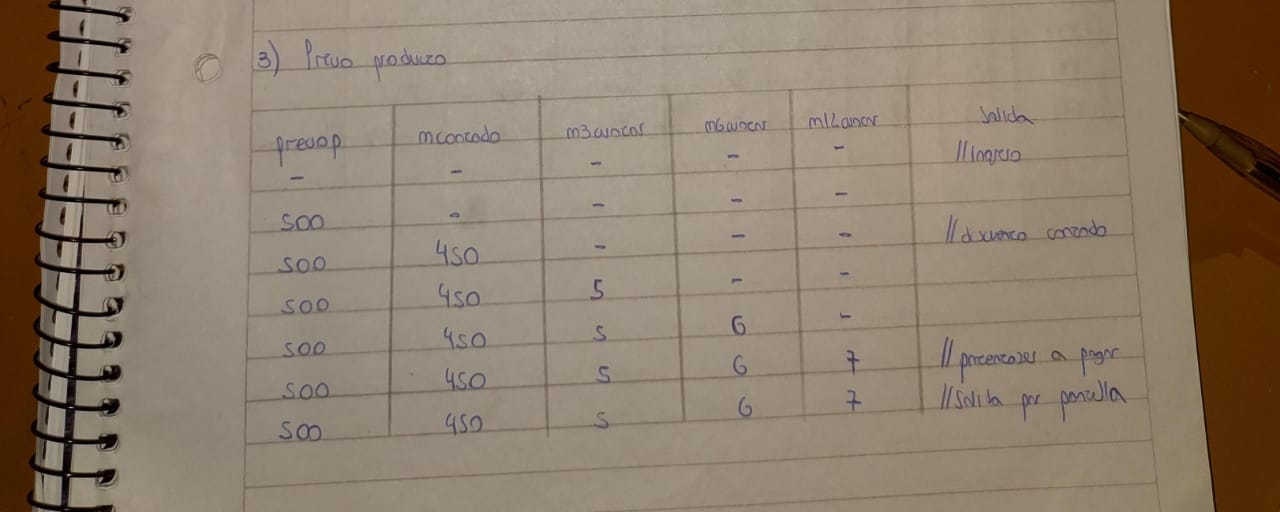 3) Precio producto
preciop mcontado m3cuotas m6cuotas m12cuotas Salida
- - - - - //Ingreso
500 - - - -
500 450 - - - //descuento contado
500 450 5 - -
500 450 5 6 -
500 450 5 6 7 //porcentajes a pagar
500 450 5 6 7 //Salida por pantalla